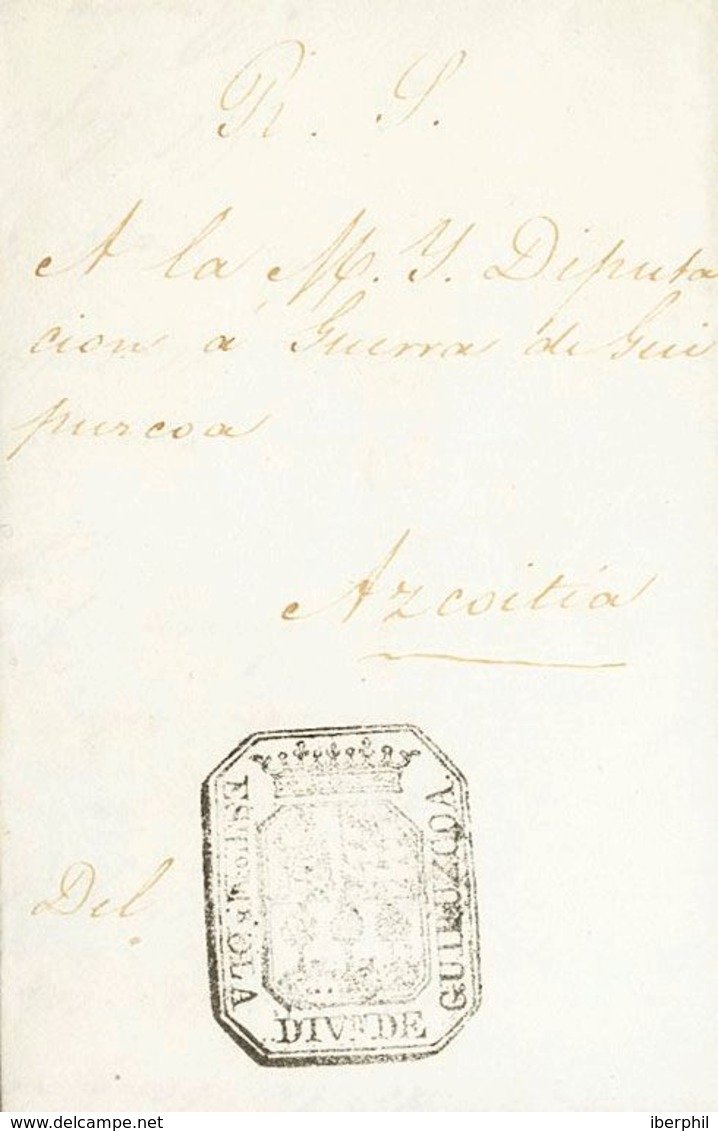 R. S.
A la M. Y. Diputa
cion a Guerra de Gui
purcoa
Azcoitia
Del.
ESTDO. M. DE LA
DIVN. DE
GUIPUZCOA.
delcampe.net
iberphil